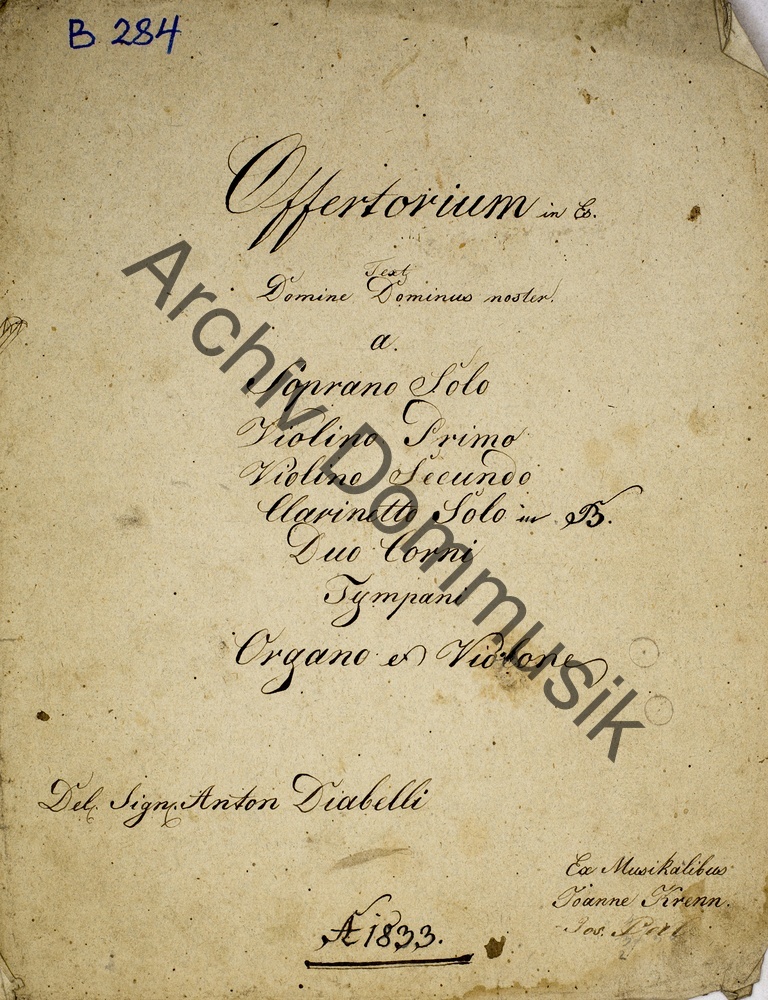 B 284
Offertorium in Es.
Text
Domine Dominus noster.
a.
Soprano Solo
Violino Primo
Violino Secundo
Clarinetto Solo in B.
Duo Corni
Tympani
Organo et Violone
Del. Sign. Anton Diabelli
Ex Musikalibus
Joanne Krenn.
Jos.
A 1833.
Archiv Dommusik